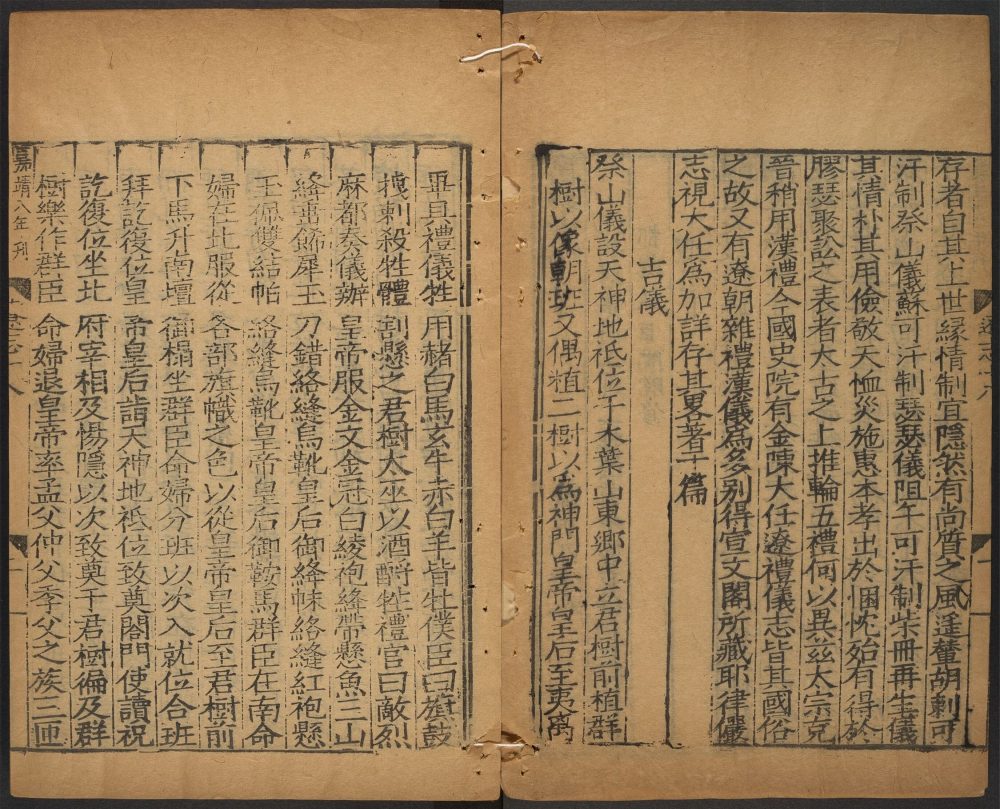 存者自其上世緣情制宜隱然有尚質之風遥輦胡剌可
汗制祭山儀蘇可汗制瑟瑟儀阻午可汗制柴冊再生儀
其情朴其用儉敬天恤災施惠本孝出於悃忱殆有得於
膠瑟聚訟之表者太古之上推輪五禮何以異兹太宗克
晉稍用漢禮今國史院有金陳大任遼禮儀志皆其國俗
之故又有遼朝雜禮漢儀為多别得宣文閣所藏耶律儼
志視大任為加詳存其畧著于篇
吉儀
祭山儀設天神地祇位于木葉山東鄉中立君樹前植群
樹以像朝班又偶植二樹以為神門皇帝皇后至夷离
畢具禮儀牲用赭白馬玄牛赤白羊皆牡僕臣曰旗鼓
拽剌殺牲體割懸之君樹太巫以酒酹牲禮官曰敵烈
麻都奏儀辦皇帝服金文金冠白綾袍絳帶懸魚三山
絳垂飾犀玉刀錯絡縫烏靴皇后御絳帓絡縫紅袍懸
玉佩雙結帕絡縫烏靴皇帝皇后御鞍馬群臣在南命
婦在北服從各部旗幟之色以從皇帝皇后至君樹前
下馬升南壇御榻坐群臣命婦分班以次入就位合班
拜訖復位皇帝皇后詣天神地祇位致奠閤門使讀祝
訖復位坐北府宰相及惕隱以次致奠于君樹徧及群
樹樂作群臣命婦退皇帝率孟父仲父季父之族三匝
嘉靖八年刊